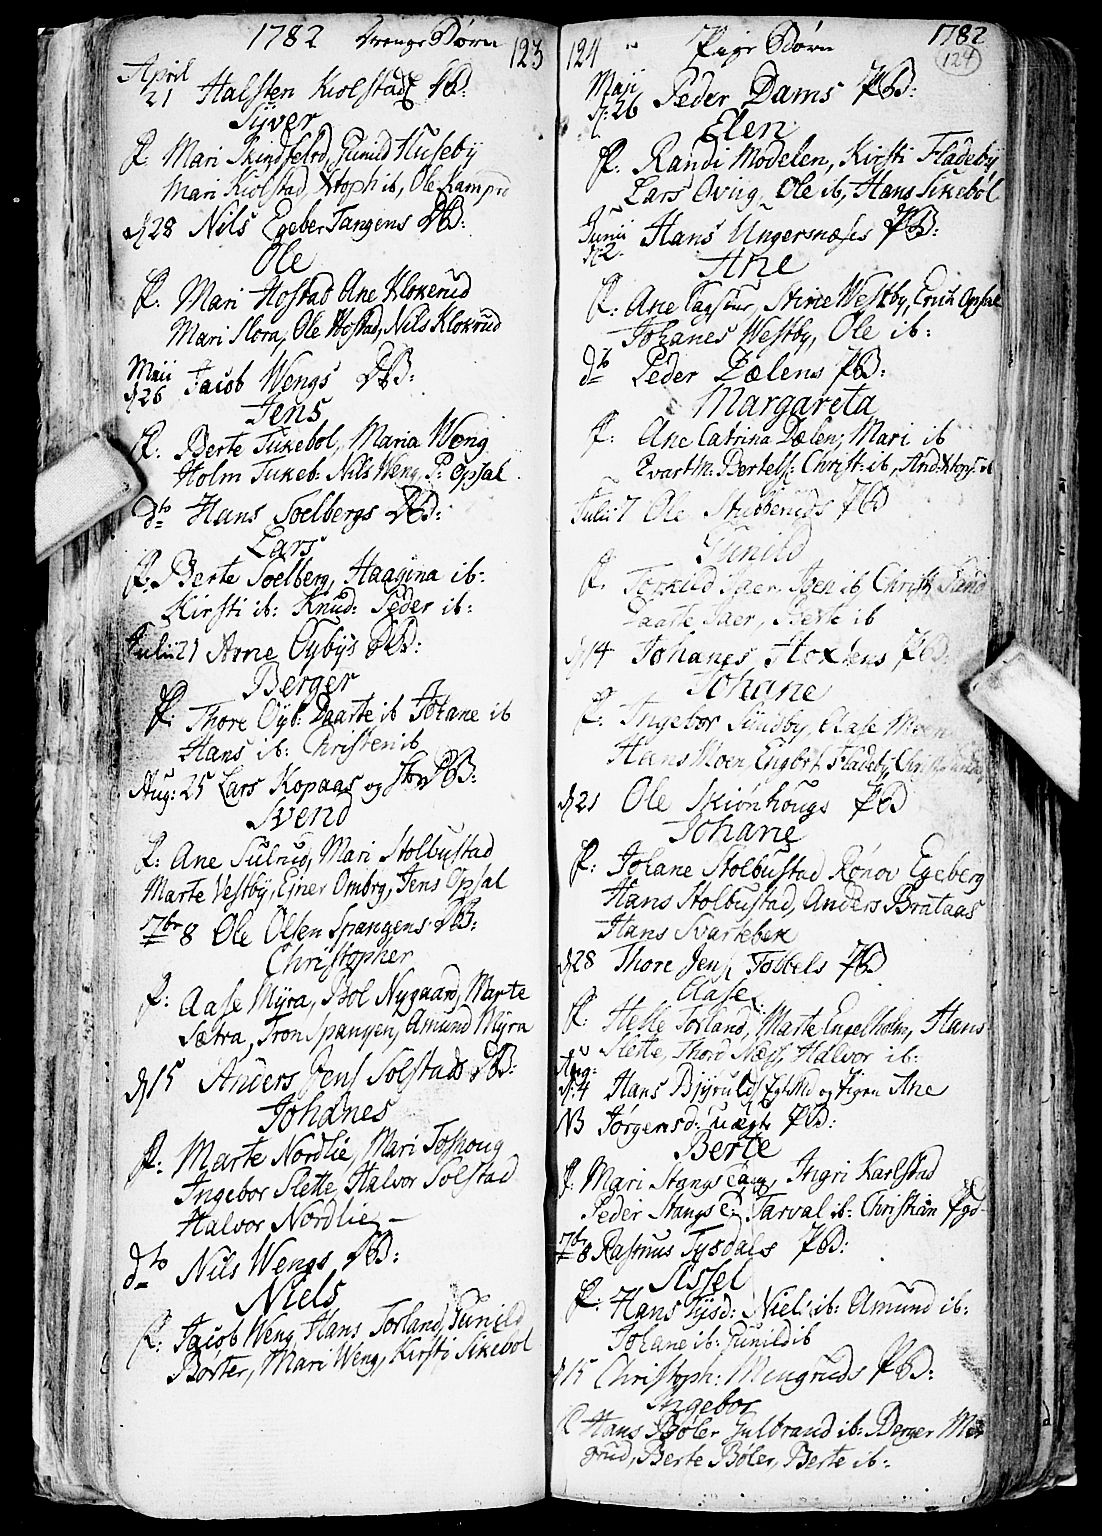 1782 Drenge Børn 123
April
21 Halsten Kiolstads DB:
Syver
F. Mari Skindfelrd, Gunild Huseby
Mari Kiolstad, Xtoph ib, Ole Kamprd
d 28 Nils Egeber Tangens DB:
Ole
F. Mari Hofstad Ane Klokerud
Mari Flora, Ole Hofstad, Nils Klokrud
Maii
d 26 Jacob Wengs DB:
Jens
F. Berte Sikebøl, Maria Weng
Holm Sikeb: Nils Weng, P: Opsal
dto Hans Soelbergs DB:
Lars
F. Berte Soelberg, Haagina ib:
Kirsti ib: Knud: Peder ib:
Julii 21 Arne Øybys DB:
Berger
F. Thore Øyb: Daarte ib Johane ib
Hans ib: Christen ib
Aug: 25 Lars Kopaas og DB:
Svend
F: Ane Sulrud, Mari Stolbustad
Marte Vestby, Ejner Ombrg, Jens Opsal
7br 8 Ole Olsen Spangens DB:
Christopher
F: Aase Myra, Bol Nygaard, Marte
Sætra, Tron Spangen, Amund Myra
d 15 Anders Jens Solstads DB:
Johanes
F: Marte Nordlie, Mari Toshoug
Ingebor Slette, Halvor Solstad
Halvor Nordlie –
dto Nils Wengs DB:
Niels
F: Jacob Weng, Hans Torland, Gunild
Borter, Mari Weng, Kirsti Sikebøl
124 Pige Børn 1782
124
Maji
d: 26 Peder Dams PB:
Elen
F. Randi Modelen, Kirsti Fladeby
Lars Oviig, Ole ib, Hans Sikebøl
Junii
d 2. Hans Ungersnæses PB:
Ane
F: Ane Tagstur, Stine Westby, Erich Opsal
Johanes Westby, Ole ib:
dto Peder Dælens PB:
Margareta
F. Ane Catrina Dælen, Mari ib
Evart M: Bertels: Christ: ib, And: Xtop:
Julii 7 Ole Stubberuds PB
Gunild
F. Torkild Saer, ib, Christ:
Daarte Saer, Berte ib
d 14 Johanes PB:
Johane
F: Ingebor Sundby, Aase Moen
Hans Moen, Engbrt Fladeby, Christ
d 21 Ole Skiønhougs PB
Johane
F: Johane Stolbustad Rønov Egeberg
Hans Stolbustad, Anders Brataas
Hans Svartebek
d 28 Thore Jens Tobbels PB
Aase
F. Helle Torland, Marte Engelholm, Hans
Slette, Thord Næss, Halvor ib:
Aug:
d: 4 Hans Bjyruld og Pigen Ane
NB Jørgensd: uægte PB:
Berte
F. Mari Stangs Eng, Ingri Karlstad
Peder Stangs E: Tarval ib: Christian
7br 8 Rasmus Tysdals PB:
Sissel
F: Hans Tysd: Niels ib: Amund ib:
Johane ib: Gunild ib
d 15 Christoph: Mengruds PB:
Ingebor
F Hans Bøler Gulbrand ib: Berger Men
grud, Berte Bøler, Berte ib: